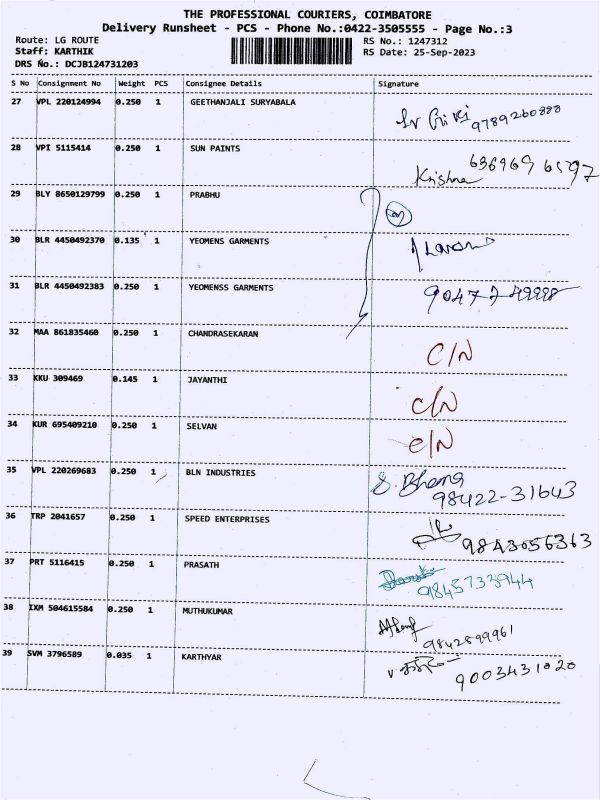 THE PROFESSIONAL COURIERS, COIMBATORE
Delivery Runsheet - PCS - Phone No.:0422-3505555 - Page No.:3
Route: LG ROUTE RS No.: 1247312
Staff: KARTHIK RS Date: 25-Sep-2023
DRS No.: DCJB124731203
S No Consignment No Weight PCS Consignee Details Signature
27 VPL 220124994 0.250 1 GEETHANJALI SURYABALA
9789260888
28 VPI 5115414 0.250 1 SUN PAINTS
Krishna 636969 6597
29 BLY 8650129799 0.250 1 PRABHU
30 BLR 4450492370 0.135 1 YEOMENS GARMENTS
31 BLR 4450492383 0.250 1 YEOMENSS GARMENTS
32 MAA 861835460 0.250 1 CHANDRASEKARAN
C/N
33 KKU 309469 0.145 1 JAYANTHI
C/N
34 KUR 695409210 0.250 1 SELVAN
C/N
35 VPL 220269683 0.250 1 BLN INDUSTRIES
98422-31643
36 TRP 2041657 0.250 1 SPEED ENTERPRISES
9843056363
37 PRT 5116415 0.250 1 PRASATH
9845733944
38 IXM 504615584 0.250 1 MUTHUKUMAR
9842899961
39 SVM 3796589 0.035 1 KARTHYAR
9003431020